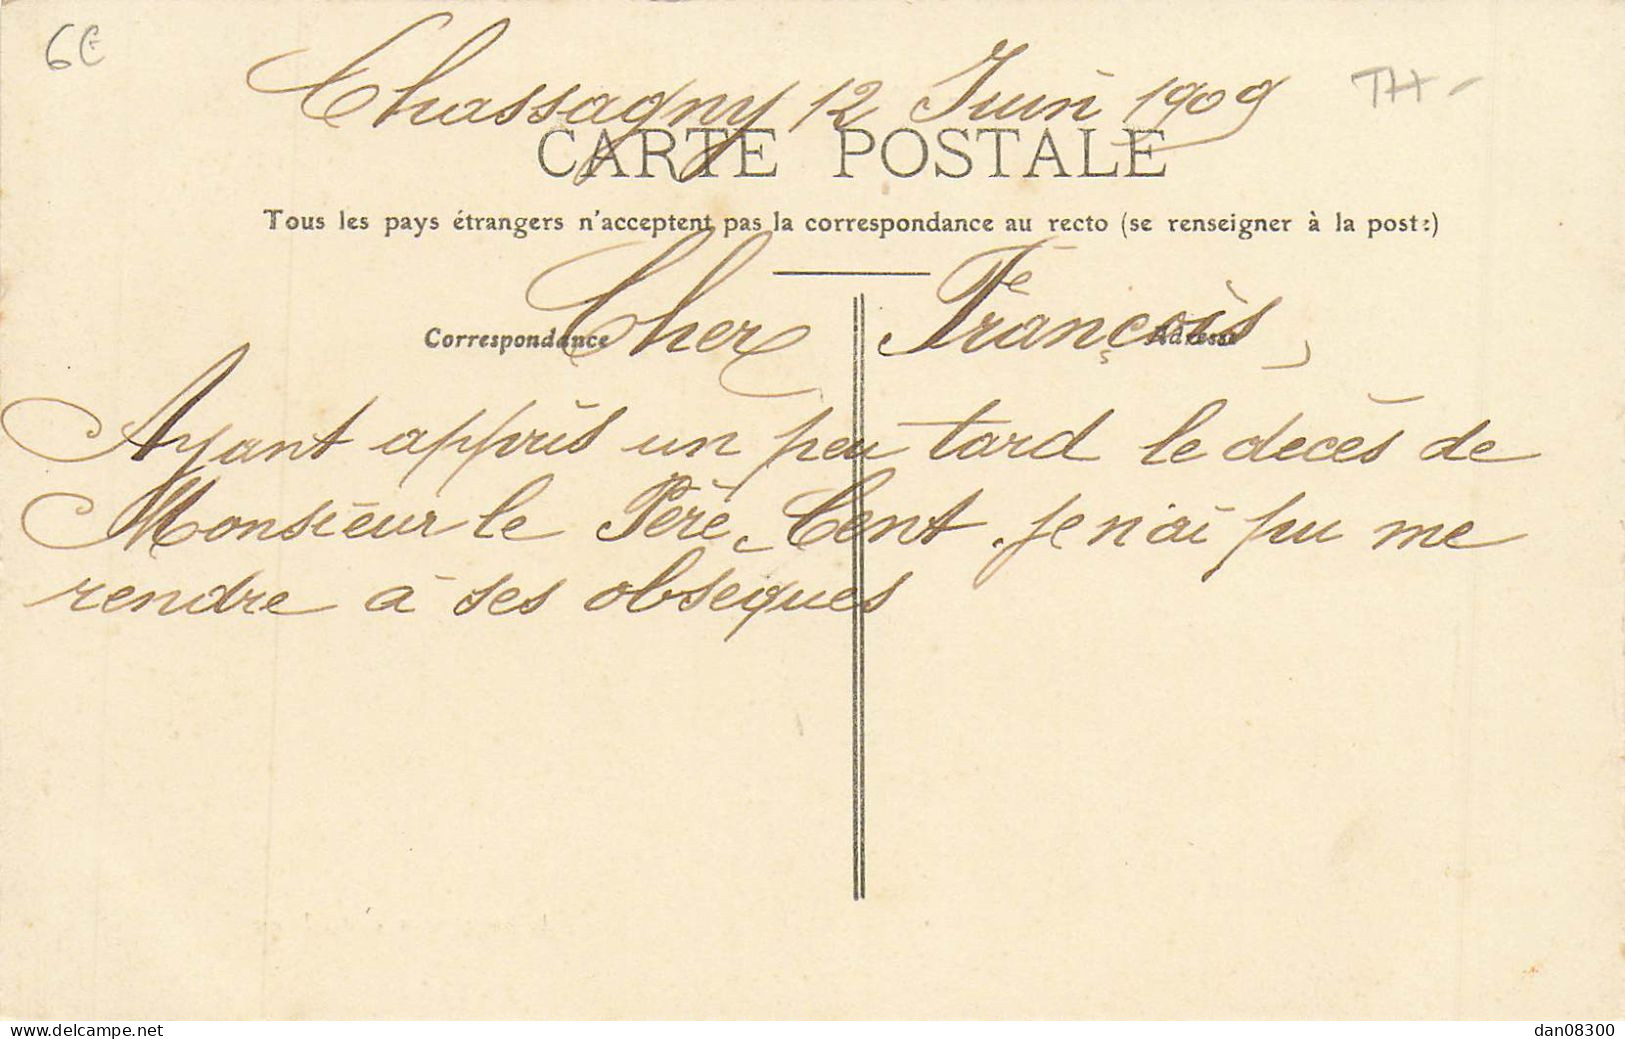 6€
Chassagny 12 Juin 1909
TH -
CARTE POSTALE
Tous les pays étrangers n'acceptent pas la correspondance au recto (se renseigner à la poste)
Cher François,
Correspondance
Adresse
Ayant appris un peu tard le decès de
Monsieur le Père Cent. je n'ai pu me
rendre à ses obseques
www.delcampe.net
dan08300